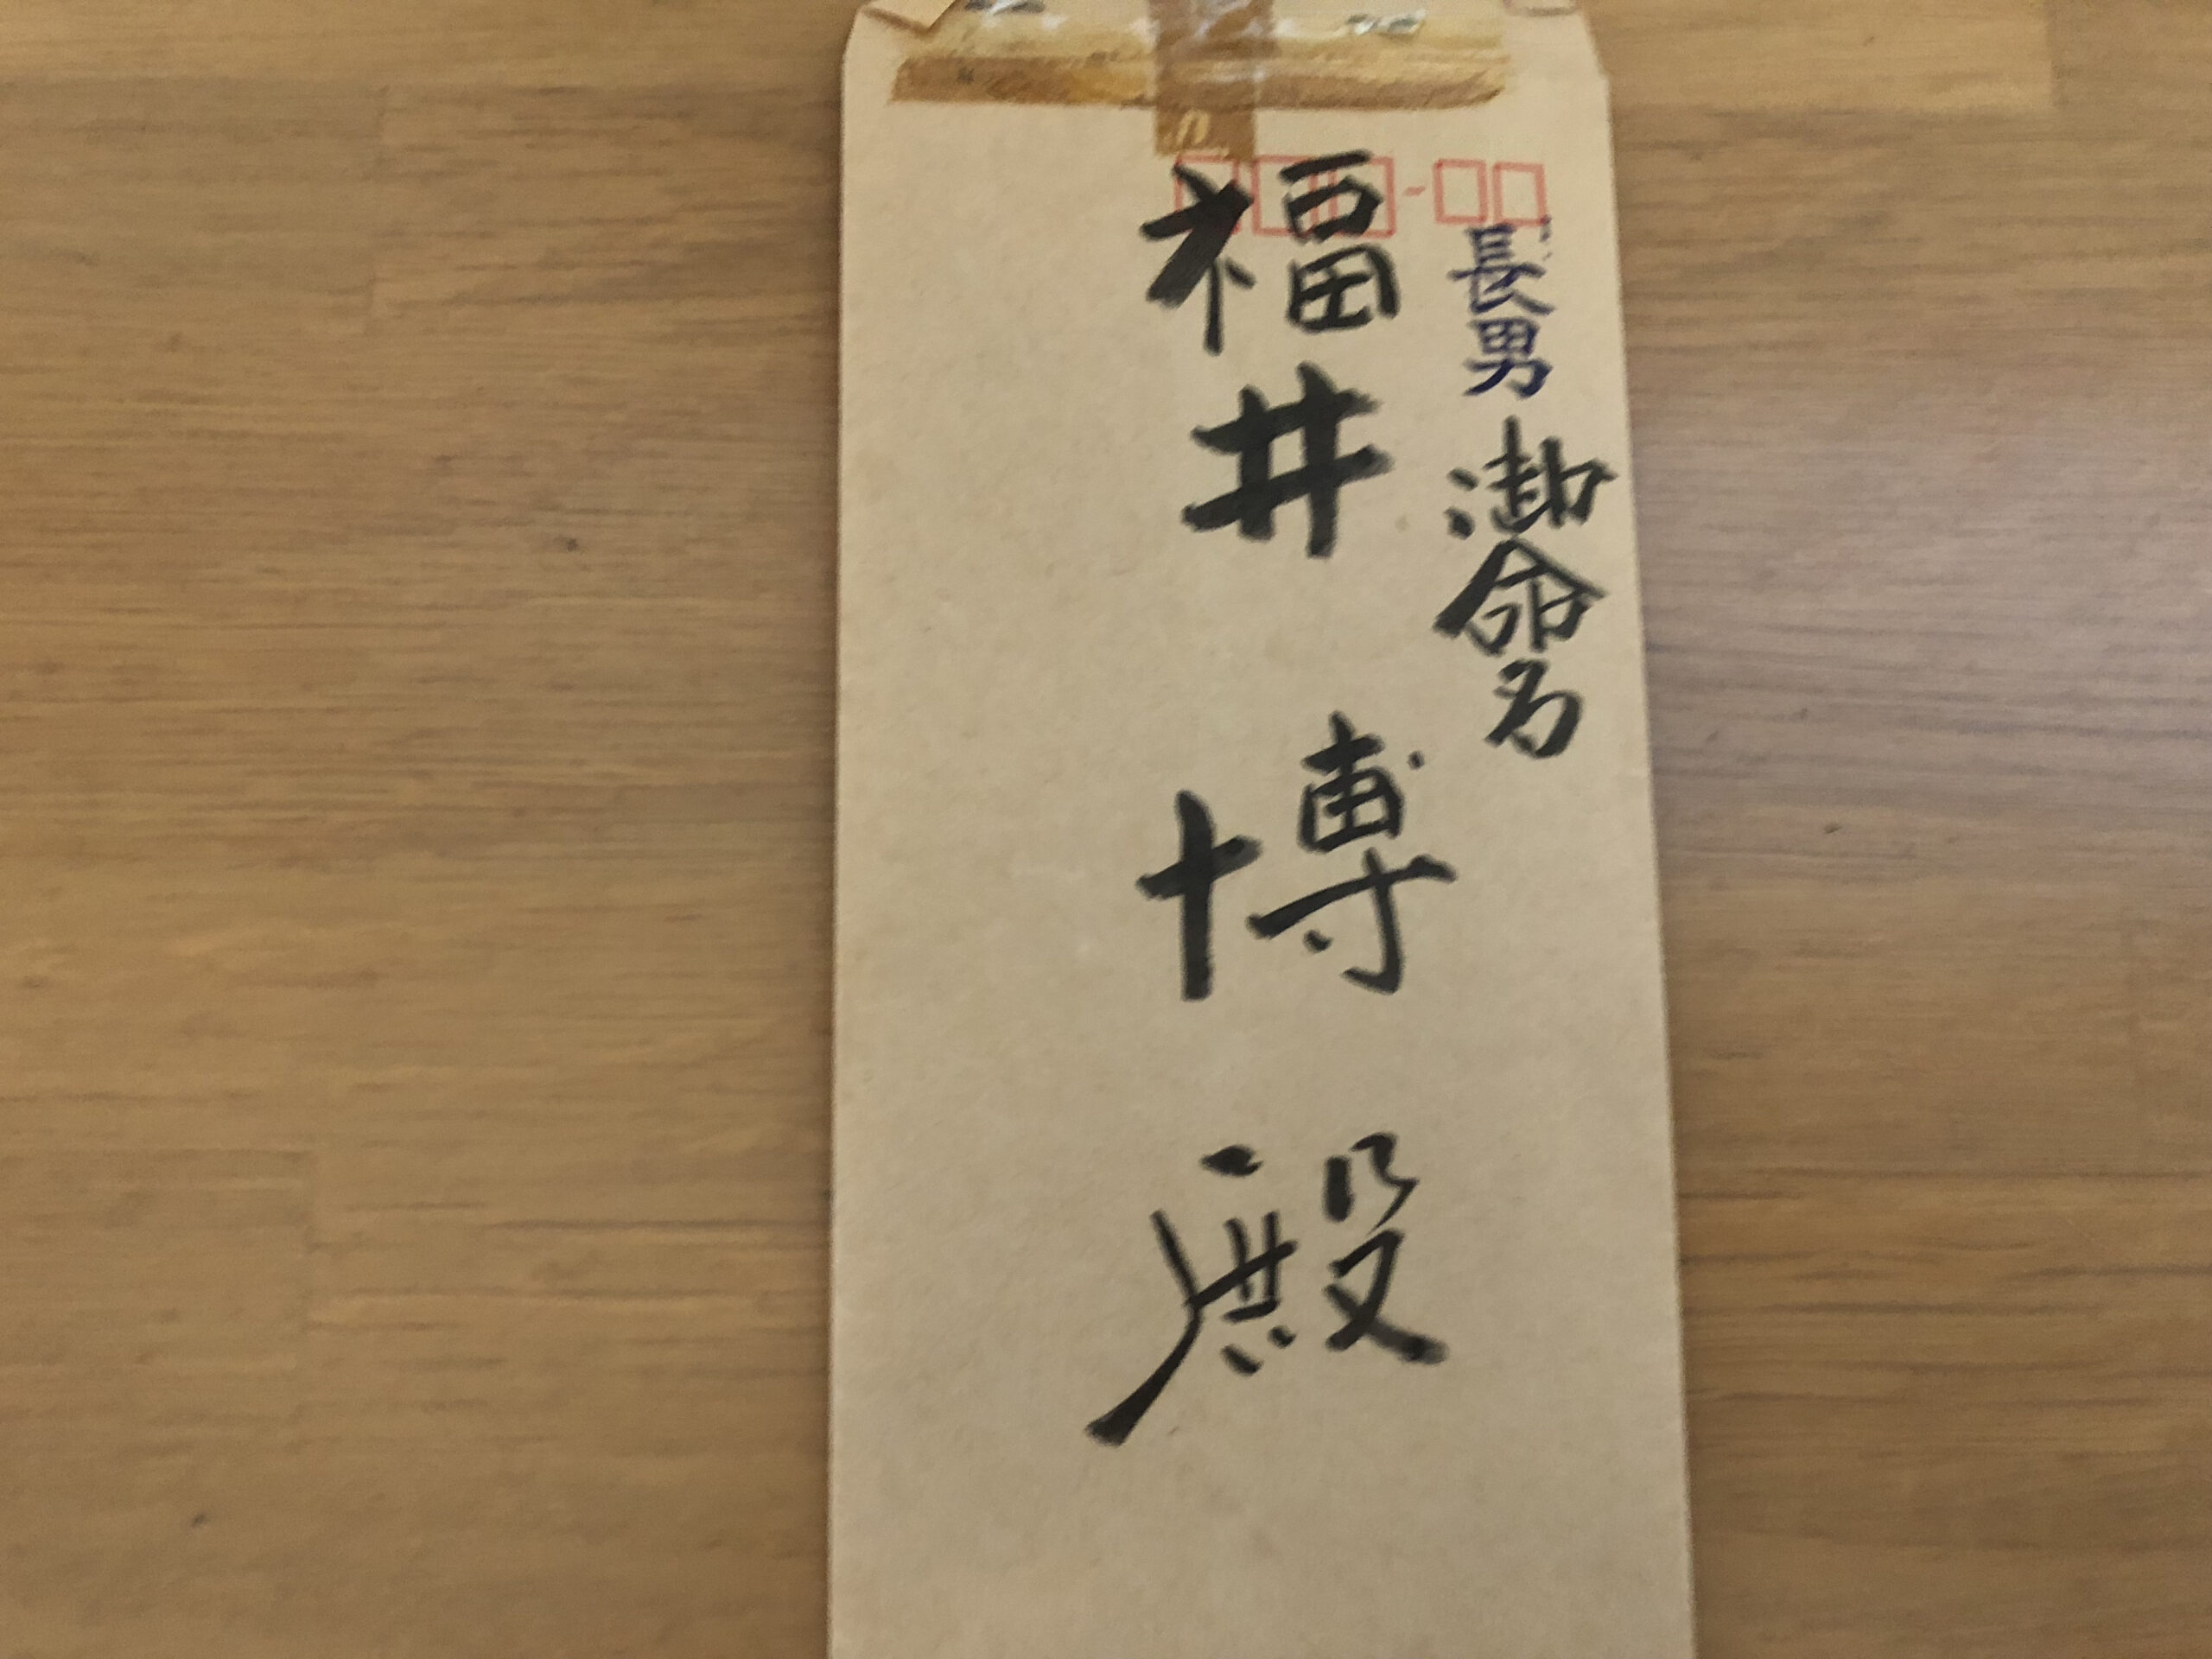 長男 御命名
福井 博 殿